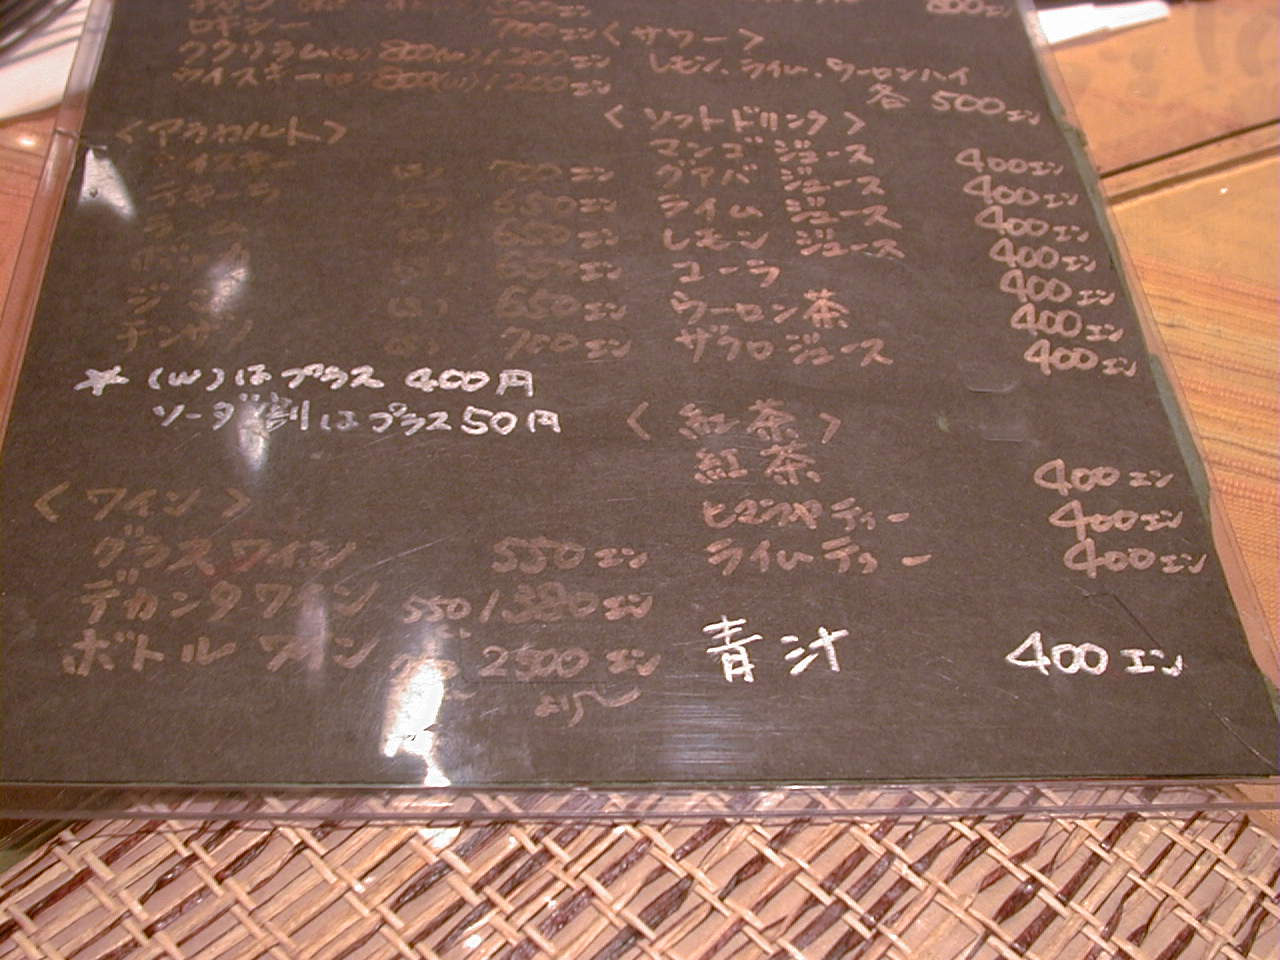 ロキシー 700エン
ククリラム(S)800(W)1200エン
ウイスキー(S)800(W)1200エン
<アルカルト>
ウイスキー (S) 700エン
テキーラ (S) 650エン
ラム (S) 650エン
ウォッカ (S) 650エン
ジン (S) 650エン
チンザノ (S) 700エン
☆ (W)はプラス 400円
ソーダ割はプラス50円
<ワイン>
グラスワイン 550エン
デカンタワイン 550/1380エン
ボトル ワイン 2500エン
より〜
800エン
<サワー>
レモン、ライム、ウーロンハイ
各 500エン
<ソフトドリンク>
マンゴ ジュース 400エン
グァバ ジュース 400エン
ライム ジュース 400エン
レモン ジュース 400エン
コーラ 400エン
ウーロン茶 400エン
ザクロジュース 400エン
<紅茶>
紅茶 400エン
ティー 400エン
ライムティー 400エン
青汁 400エン